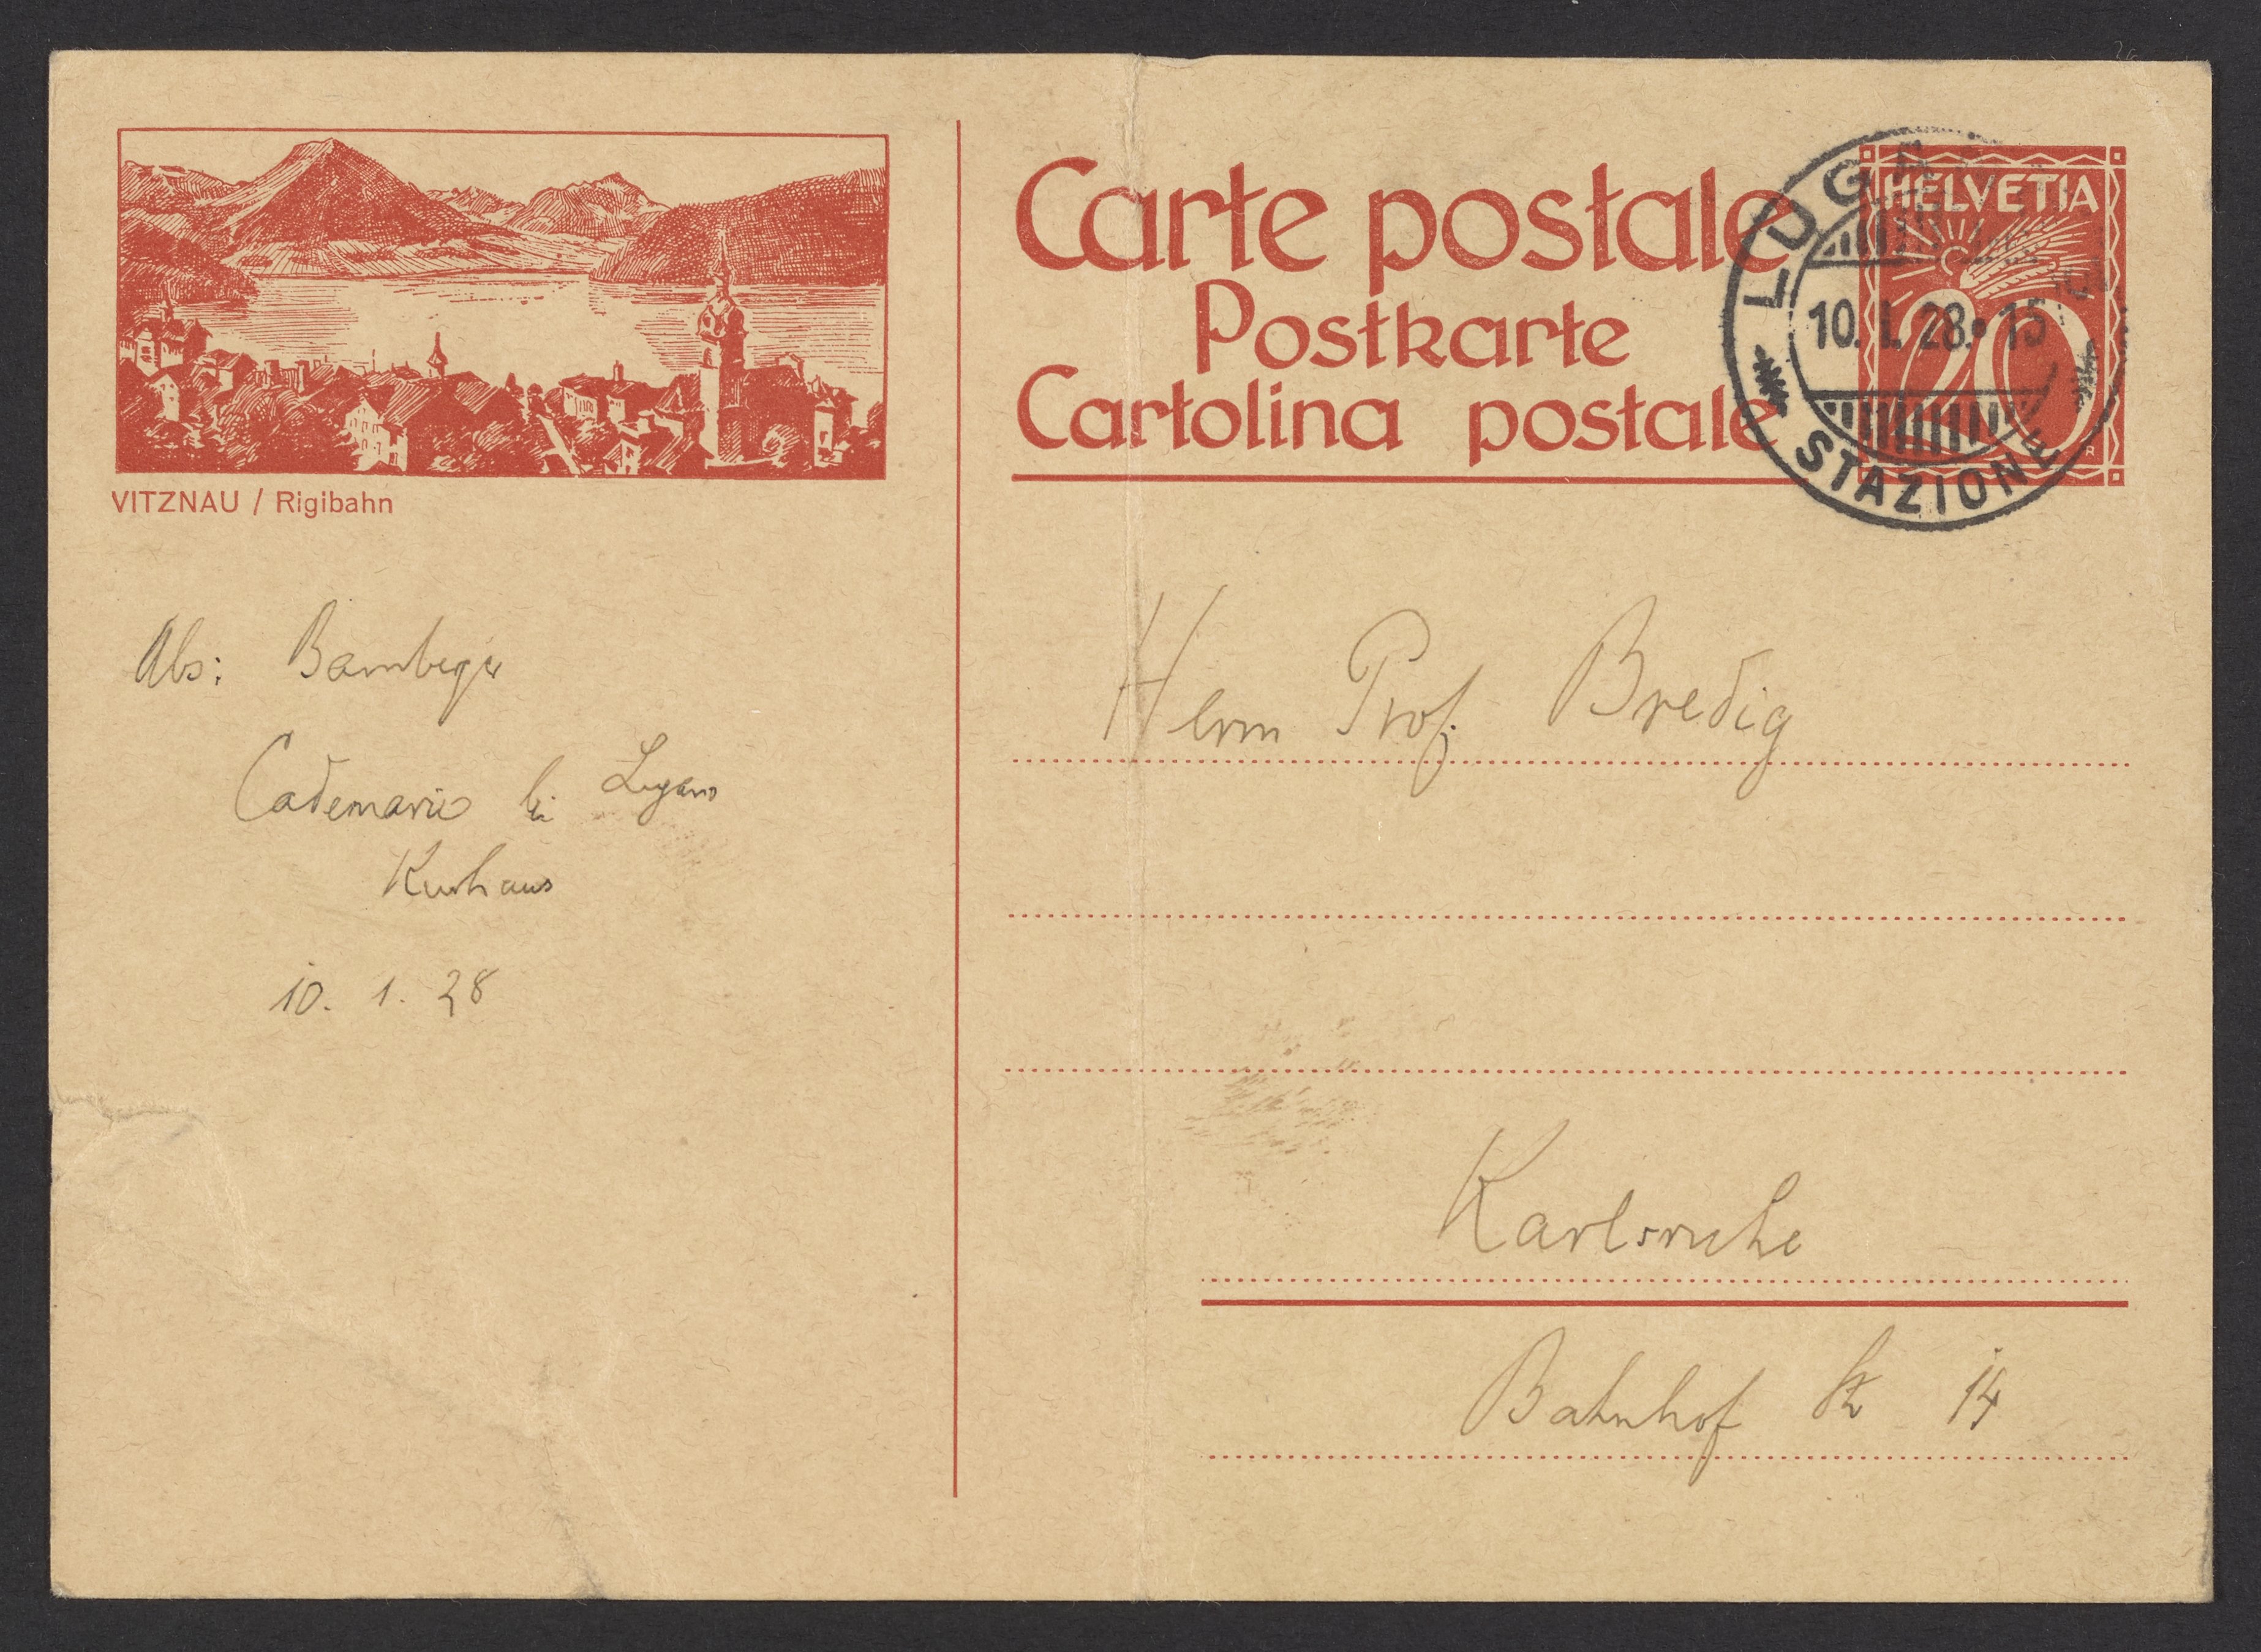 Carte postale
Postkarte
Cartolina postale
HELVETIA
20
LUGANO
10. I. 28. 15
STAZIONE
VITZNAU / Rigibahn
Abs: Bamberger
Cademario bei Lugano
Kurhaus
10. 1. 28
Herrn Prof. Bredig
Karlsruhe
Bahnhof str 14